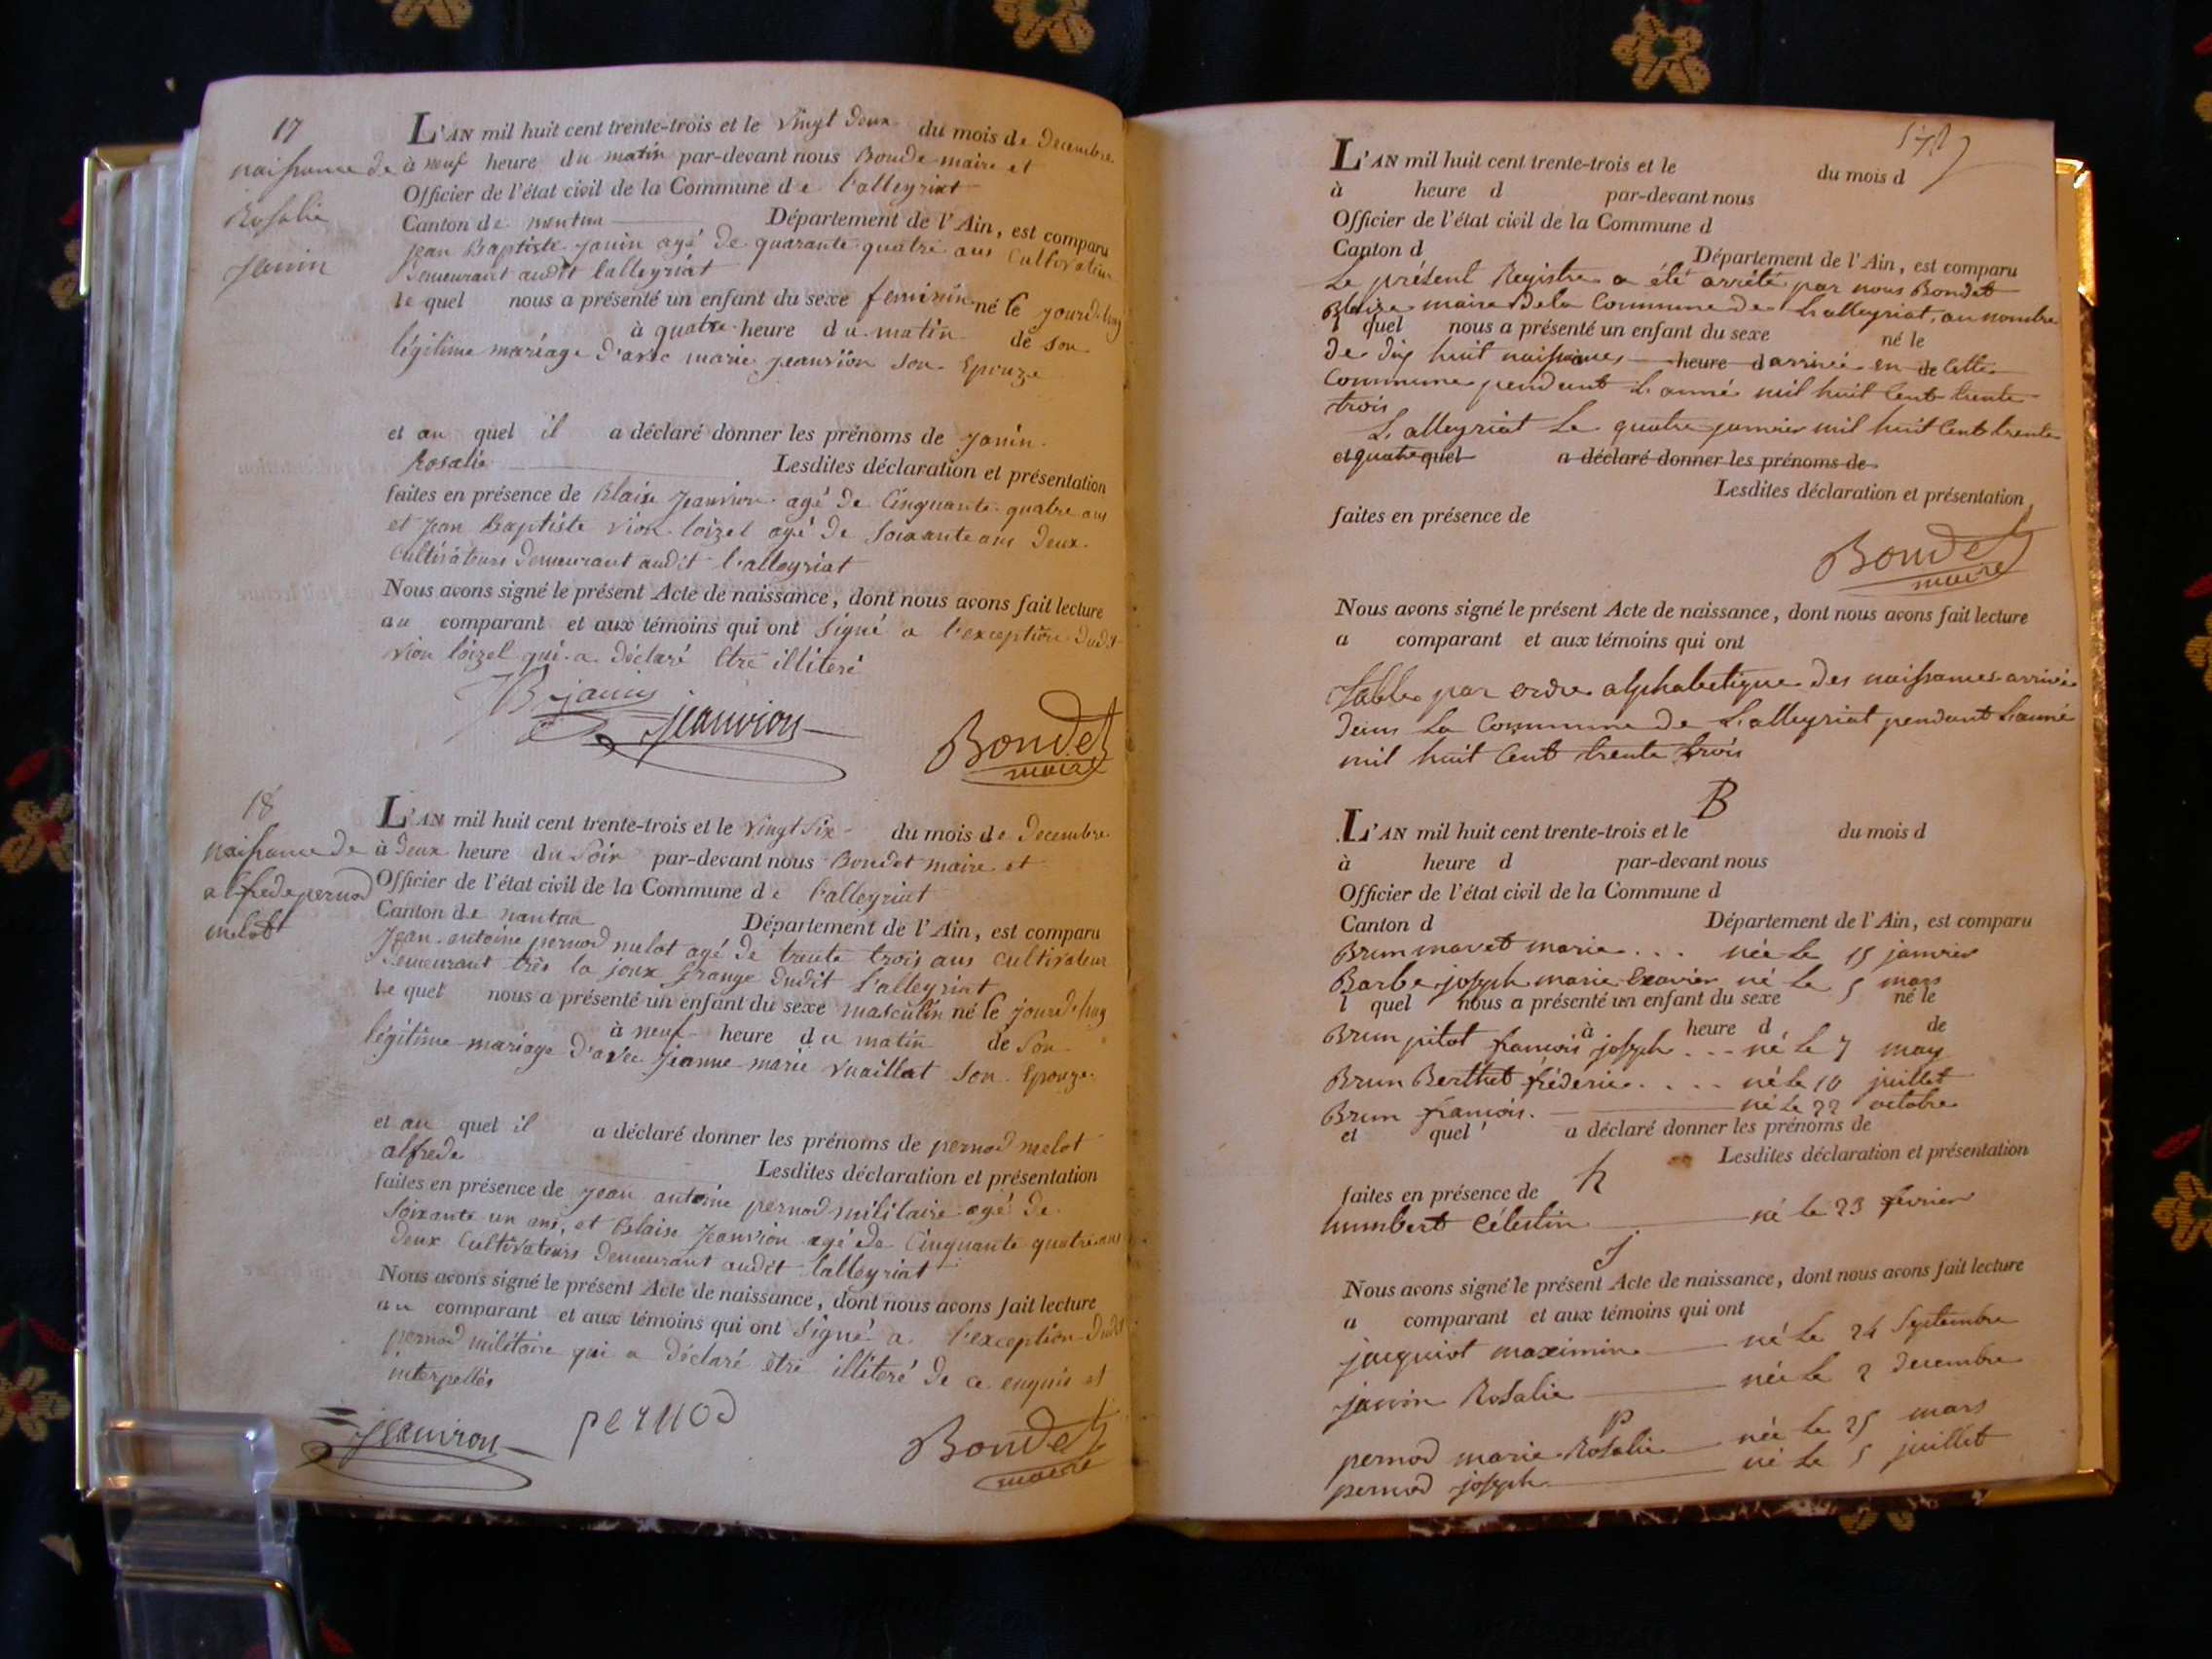 17
naissance de
Rosalie
Janin
L'AN mil huit cent trente-trois et le vingt deux du mois de decembre
à neuf heure du matin par-devant nous Bondet maire et
Officier de l'état civil de la Commune de l'alleyriat
Canton de nantua Département de l'Ain, est comparu
jean Baptiste janin agé de quarante quatre ans Cultivateur
demeurant audit lalleyriat
le quel nous a présenté un enfant du sexe feminin né le jourd'huy
à quatre heure du matin de son
légitime mariage d'avec marie jeanvion son Epouze
et au quel il a déclaré donner les prénoms de janin
Rosalie Lesdites déclaration et présentation
faites en présence de Blaise jeanvion agé de Cinquante quatre ans
et jean Baptiste vion loizel agé de soixante ans deux
Cultivateurs demeurant audit l'alleyriat
Nous avons signé le présent Acte de naissance, dont nous avons fait lecture
au comparant et aux témoins qui ont signé a l'exception dudit
vion loizel qui a déclaré Etre illiteré
JB janin
jeanvion
Bondet
maire
18
naissance de
alfrede pernod
melot
L'AN mil huit cent trente-trois et le vingt six du mois de decembre
à deux heure du soir par-devant nous Bondet maire et
Officier de l'état civil de la Commune de l'alleyriat
Canton de nantua Département de l'Ain, est comparu
jean antoine pernod melot agé de trente trois ans cultivateur
demeurant la joux grange dudit l'alleyriat
le quel nous a présenté un enfant du sexe masculin né le jourd'huy
à neuf heure du matin de son
légitime mariage d'avec jeanne marie vuaillat son Epouze
et au quel il a déclaré donner les prénoms de pernod melot
alfrede Lesdites déclaration et présentation
faites en présence de jean antoine pernod militaire agé de
soixante un ans, et Blaise jeanvion agé de Cinquante quatre ans
deux Cultivateurs demeurant audit lalleyriat
Nous avons signé le présent Acte de naissance, dont nous avons fait lecture
au comparant et aux témoins qui ont signé a l'exception dudit
pernod militaire qui a déclaré etre illiteré de ce enquis et
interpellés
jeanvion
pernod
Bondet
maire
L'AN mil huit cent trente-trois et le du mois d
à heure d par-devant nous
Officier de l'état civil de la Commune d
Canton d Département de l'Ain, est comparu
Le présent Registre a été arrêté par nous Bondet
Blaise maire de la Commune de Lalleyriat, au nombre
l quel nous a présenté un enfant du sexe né le
de dix huit naissances heure d arrivée en de cette
Commune pendant L'année mil huit Cent trente
trois
L'alleyriat Le quatre janvier mil huit Cent trente
et quatre quel a déclaré donner les prénoms de
Lesdites déclaration et présentation
faites en présence de
Bondet
maire
Nous avons signé le présent Acte de naissance, dont nous avons fait lecture
a comparant et aux témoins qui ont
Table par ordre alphabetique des naissances arrivée
dans La Commune de L'alleyriat pendant L'année
mil huit Cent trente trois
B
L'AN mil huit cent trente-trois et le du mois d
à heure d par-devant nous
Officier de l'état civil de la Commune d
Canton d Département de l'Ain, est comparu
Brun mavet marie . . . née le 15 janvier
Barbe joseph marie Exavier né Le 5 mars
l quel nous a présenté un enfant du sexe né le
à heure d de
Brun pitot françois joseph . . . né le 7 may
Brun Berthet fréderic . . . . né le 10 juillet
Brun françois. né le 22 octobre
et quel a déclaré donner les prénoms de
Lesdites déclaration et présentation
h
faites en présence de
humbert Célestin né le 23 fevrier
J
Nous avons signé le présent Acte de naissance, dont nous avons fait lecture
a comparant et aux témoins qui ont
jacquiot maximin né Le 24 Septembre
janin Rosalie née Le 2 decembre
P
pernod marie Rosalie née Le 25 mars
pernod joseph né Le 5 juillet